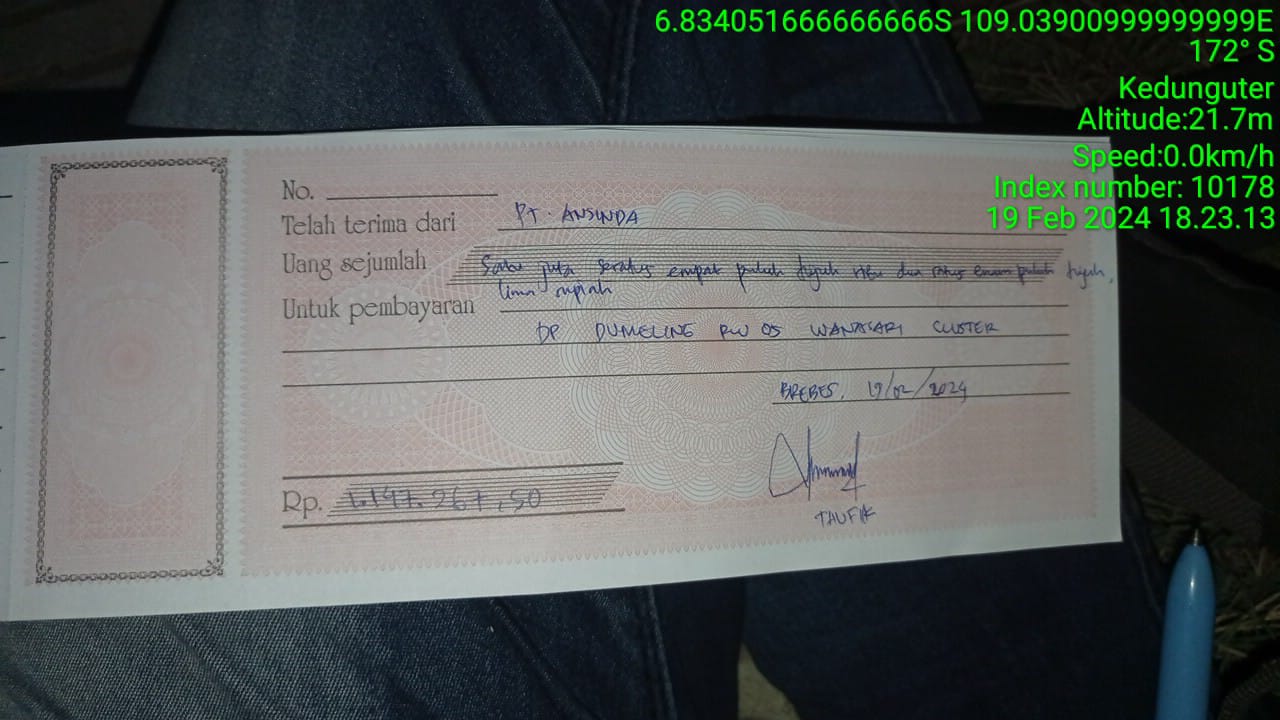 6.834051666666666S 109.03900999999999E
172° S
Kedunguter
Altitude:21.7m
Speed:0.0km/h
Index number: 10178
19 Feb 2024 18.23.13
No.
Telah terima dari PT. ANSINDA
Uang sejumlah Satu juta seratus empat puluh tujuh ribu dua ratus enam puluh tujuh,
lima rupiah
Untuk pembayaran
DP DUMELING RW 05 WANASARI CLUSTER
BREBES, 19/02/2024
Rp. 1.147.267,50
TAUFIK